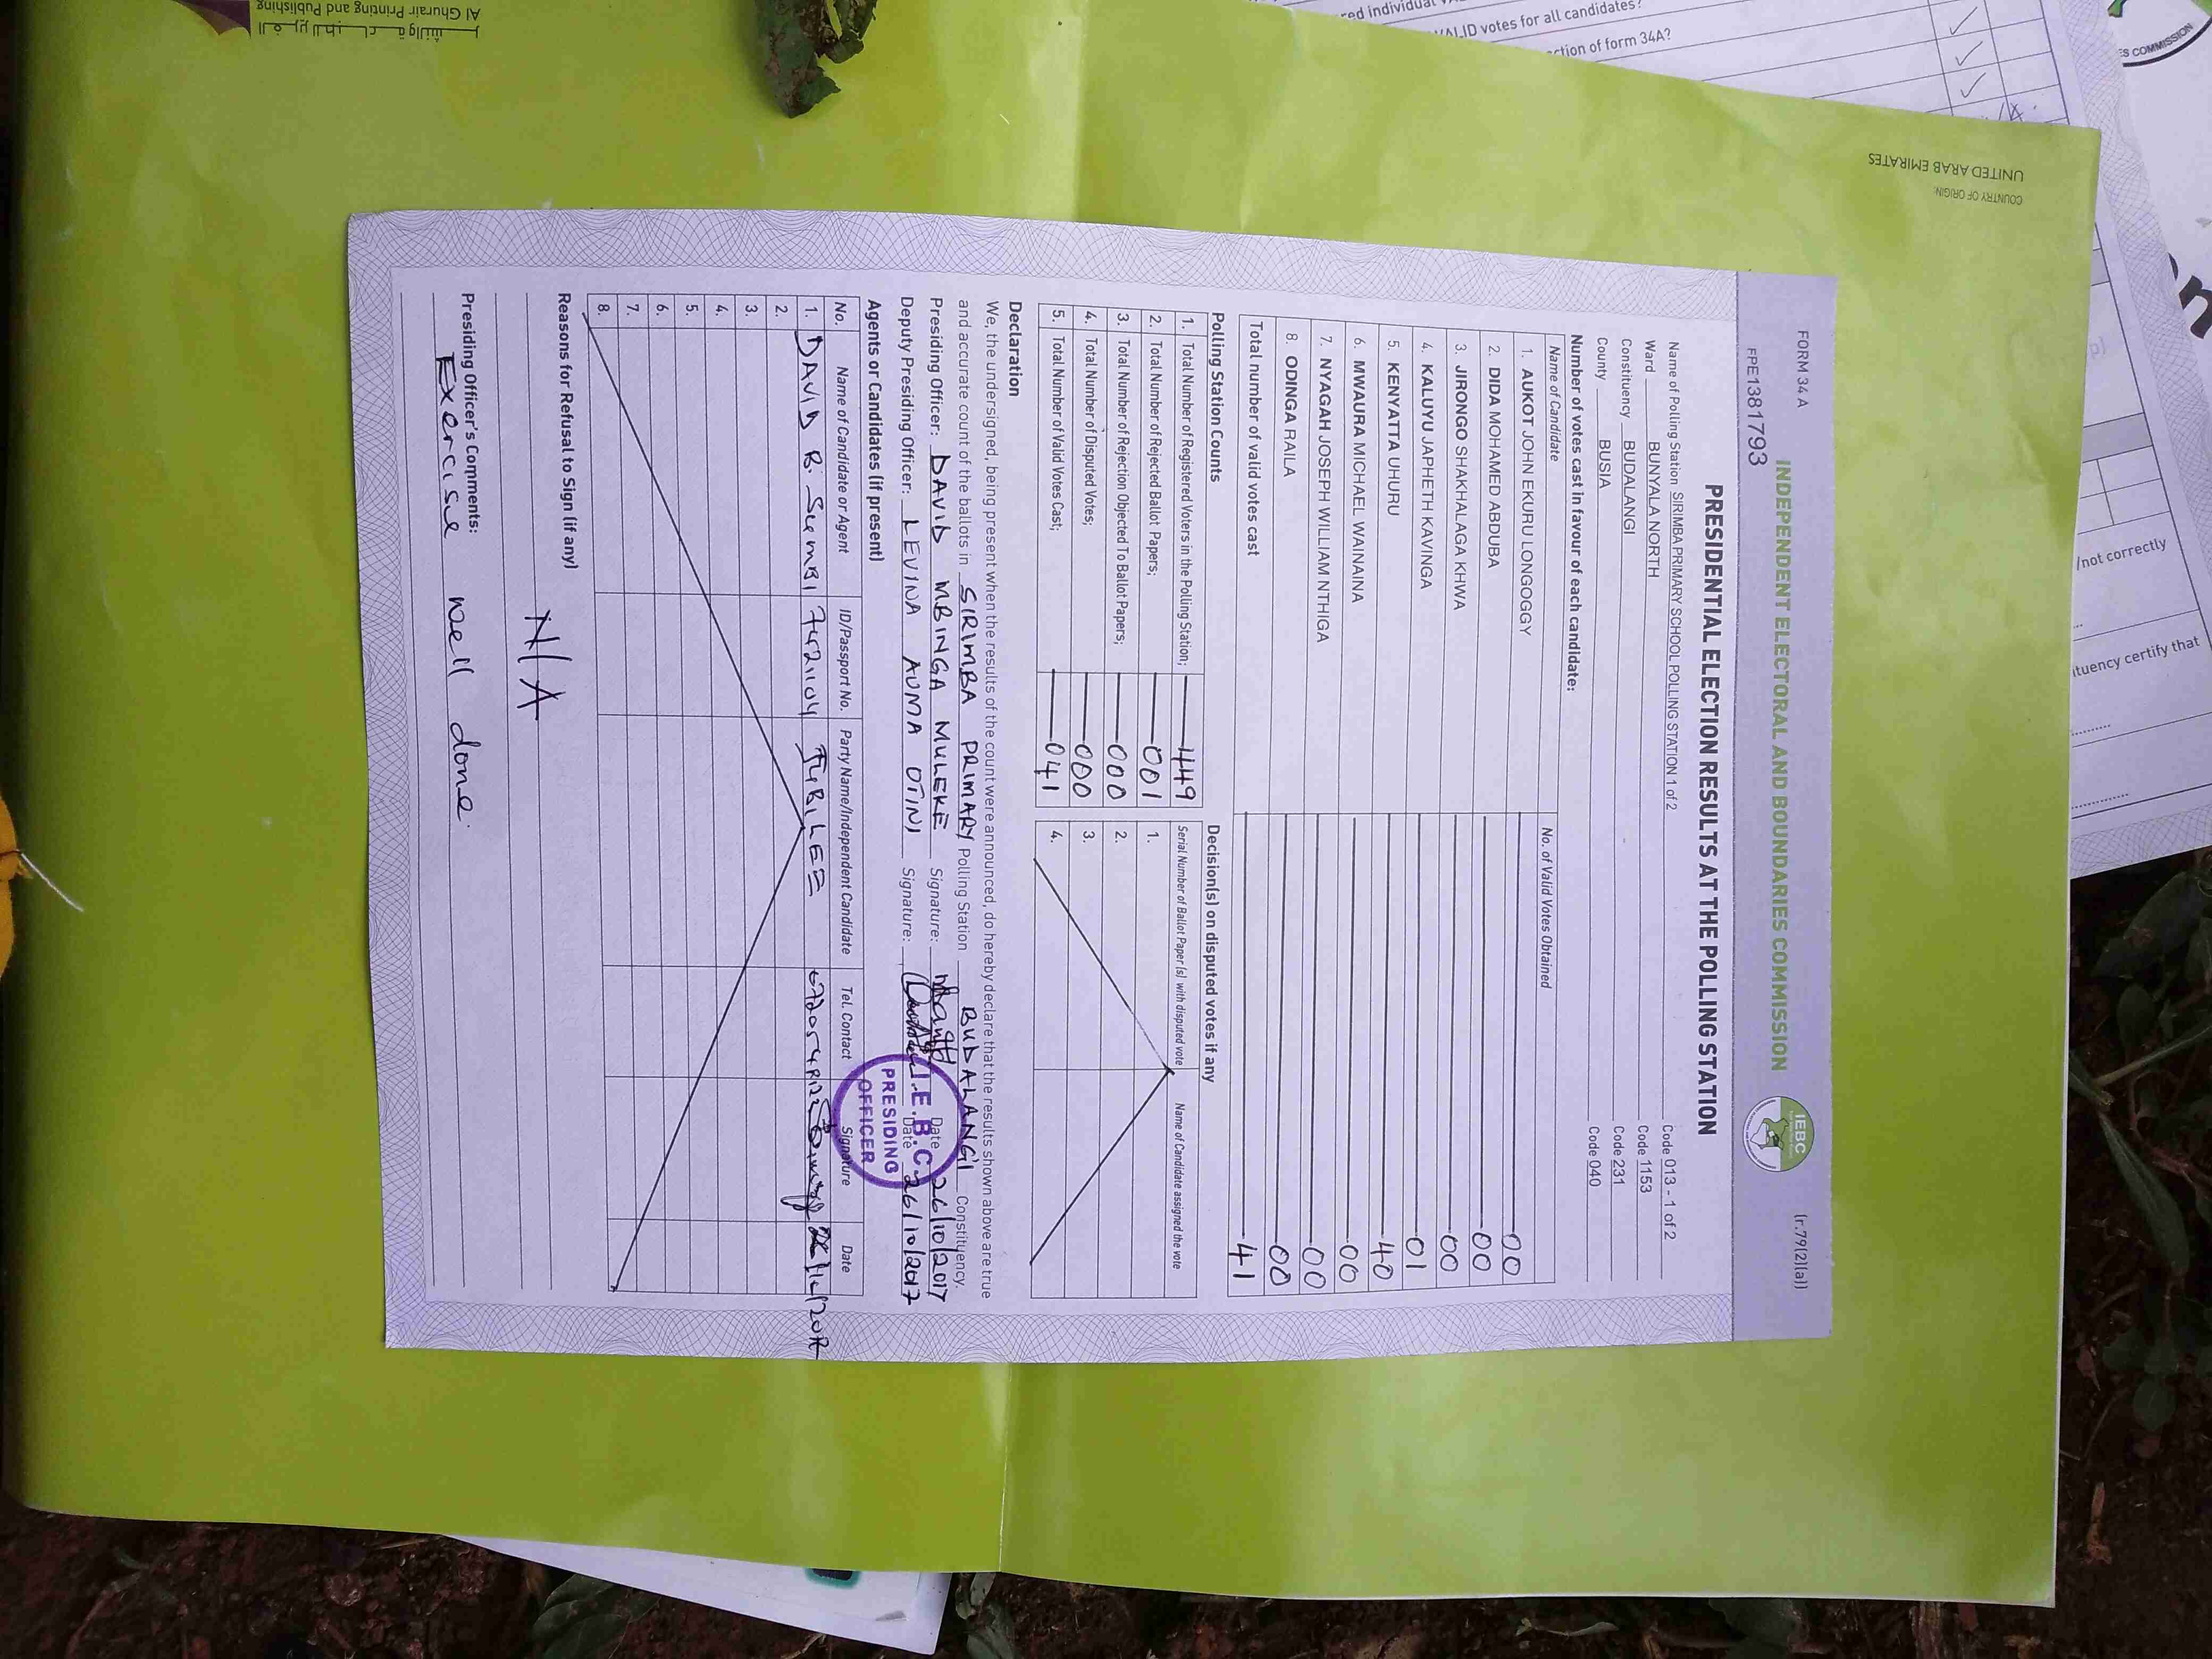 FORM 34 A
(r.79(2)(a))
INDEPENDENT ELECTORAL AND BOUNDARIES COMMISSION
IEBC
FPE1381793
PRESIDENTIAL ELECTION RESULTS AT THE POLLING STATION
Name of Polling Station SIRIMBA PRIMARY SCHOOL POLLING STATION 1 of 2 Code 013 - 1 of 2
Ward BUNYALA NORTH Code 1153
Constituency BUDALANGI Code 231
County BUSIA Code 040
Number of votes cast in favour of each candidate:
Name of Candidate No. of Valid Votes Obtained
1. AUKOT JOHN EKURU LONGOGGY 00
2. DIDA MOHAMED ABDUBA 00
3. JIRONGO SHAKHALAGA KHWA 00
4. KALUYU JAPHETH KAVINGA 01
5. KENYATTA UHURU 40
6. MWAURA MICHAEL WAINAINA 00
7. NYAGAH JOSEPH WILLIAM NTHIGA 00
8. ODINGA RAILA 00
Total number of valid votes cast 41
Polling Station Counts
1. Total Number of Registered Voters in the Polling Station; 449
2. Total Number of Rejected Ballot Papers; 001
3. Total Number of Rejection Objected To Ballot Papers; 000
4. Total Number of Disputed Votes; 000
5. Total Number of Valid Votes Cast; 041
Decision(s) on disputed votes if any
Serial Number of Ballot Paper (s) with disputed vote Name of Candidate assigned the vote
1.
2.
3.
4.
Declaration
We, the undersigned, being present when the results of the count were announced, do hereby declare that the results shown above are true
and accurate count of the ballots in SIRIMBA PRIMARY Polling Station BUDALANGI Constituency.
Presiding Officer: DAVID MBINGA MULEKE Signature: Date 26/10/2017
Deputy Presiding Officer: LEVINA AUMA OTINI Signature: Date 26/10/2017
I.E.B.C.
PRESIDING
OFFICER
Agents or Candidates (if present)
No. Name of Candidate or Agent ID/Passport No. Party Name/Independent Candidate Tel. Contact Signature Date
1. DAVID B. 7421104 JUBILEE
2.
3.
4.
5.
6.
7.
8.
Reasons for Refusal to Sign (if any)
N/A
Presiding Officer's Comments:
Exercise well done.
COUNTRY OF ORIGIN:
UNITED ARAB EMIRATES
Al Ghurair Printing and Publishing
VALID votes for all candidates?
ction of form 34A?
/not correctly
ituency certify that
ES COMMISSION